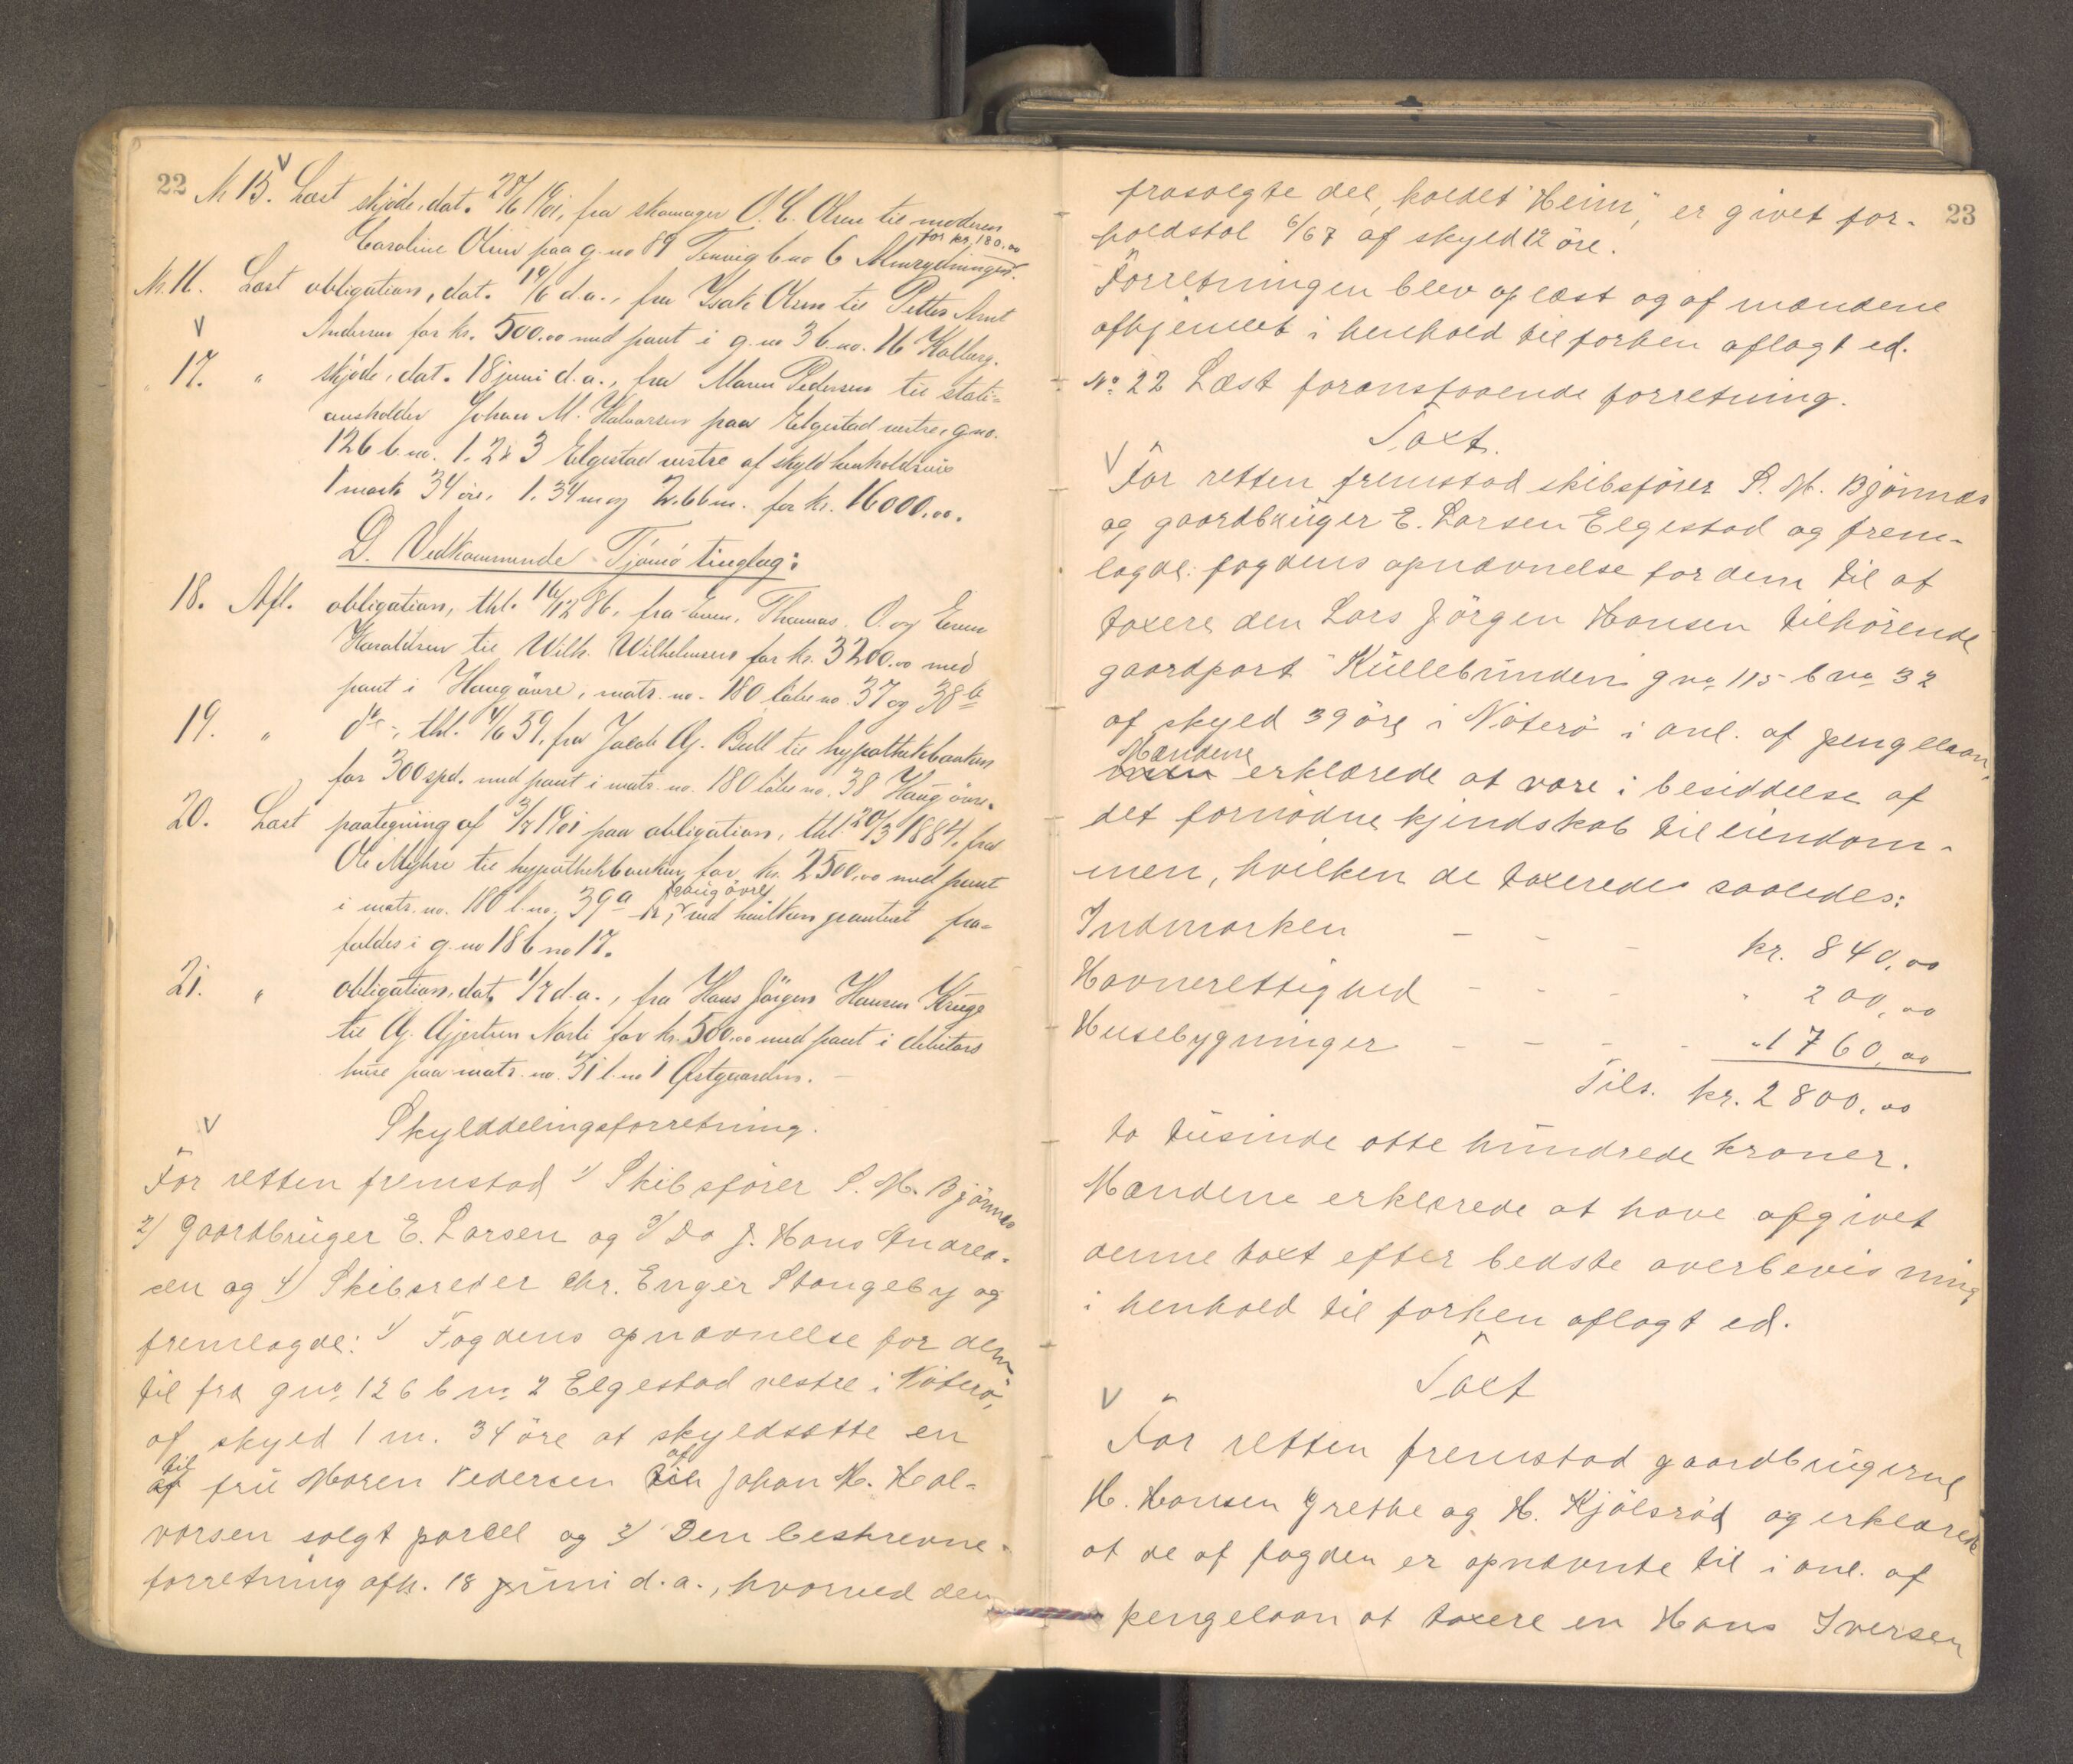 22 № 15. V Læst skjøde, dat. 28/6 1901, fra skomager O. C. Olsen til moderen
Caroline Olsen paa g.no 89 Tenvig b.no 6 Almrydningen. for kr. 180.00
№ 16. Læst obligation, dat. 19/6 d.a., fra Isak Olsen til Petter Arnt
V Andersen for kr. 500.00 med pant i g.no 3 b.no. 16 Kalberg.
17. " skjøde, dat. 18 juni d.a., fra Maren Pedersen til stati-
onsholder Johan M. Halvorsen paa Elgestad vestre, g.no.
126 b.no. 1. 2 & 3 Elgestad vestre af skyld henholdsvis
1 mark 34 øre, 1.34 m og 2.66 m. for kr. 16000.00.
D. Vedkommende Tjømø tinglag:
18. Afl. obligation, thl. 16/12 86, fra Even, Thomas, O. og Even
Haraldsen til Wilh. Wilhelmsen for kr. 3200.00 med
pant i Haug øvre, matr. no. 180 løbe no. 37 og 38 b
19. " do, thl. 4/6 59, fra Jacob Gj. Bull til hypothekbanken
for 300 spd. med pant i matr. no. 180 løbe no. 38 Haug øvre.
20. Læst paategning af 3/7 1901 paa obligation, thl. 20/3 1884, fra
Ole Myhre til hypothekbanken for kr. 2500.00 med pant
i matr. no. 180 l.no. 39a Haug øvre, ved hvilken panteret fra-
faldes i g.no 18 b no 17.
21. " obligation, dat. 1/7 d.a., fra Hans Jørgen Hansen Kruge
til Gj. Gjertsen Narli for kr. 500.00 med pant i debitors
huse paa matr. no. 31 l.no 1 Østgaarden. –
V Skylddelingsforretning.
For retten fremstod 1) Skibsfører S. M. Bjønnes
2) gaardbruger E. Larsen og 3) Do J. Hans Andrea-
sen og 4) Skibsreder Chr. Enger Stangeby og
fremlagde: 1) Fogdens opnævnelse for dem
til fra gno. 126 bno. 2 Elgestad vestre i Nøterø,
af skyld 1 m. 34 øre at skyldsætte en
til fru Maren Pedersen af Johan M. Hal-
vorsen solgt parcel og 2) Den beskrevne
forretning afh. 18 juni d.a., hvorved den
23
frasolgte del, kaldet "Heim", er givet for-
holdstal 6/67 af skyld 12 øre.
Forretningen blev oplæst og af mændene
afhjemlet i henhold til forhen aflagt ed.
No. 22 Læst foranstaaende forretning.
Taxt.
V For retten fremstod skibsfører S. M. Bjønnes
og gaardbruger E. Larsen Elgestad og frem-
lagde: fogdens opnævnelse for dem til at
taxere den Lars Jörgen Hansen tilhørende
gaardpart "Kullebunden" gno. 115 bno. 32
af skyld 39 øre i Nøterø i anl. af pengelaan,
Mændene erklærede at være i besiddelse af
det fornødne kjendskab til eiendom-
men, hvilken de taxerede saaledes:
Indmarken - - - kr. 840,00
Havnerettighed - - - " 200,00
Husebygninger - - - - " 1760,00
Tils. kr. 2800,00
to tusinde otte hundrede kroner.
Mændene erklærede at have afgivet
denne taxt efter bedste overbevisning
i henhold til forhen aflagt ed.
Taxt
V For retten fremstod gaardbrugerne
H. Hansen Grethe og H. Kjølsrød og erklærede
at de af fogden er opnævnte til i anl. af
pengelaan at taxere en Hans Iversen